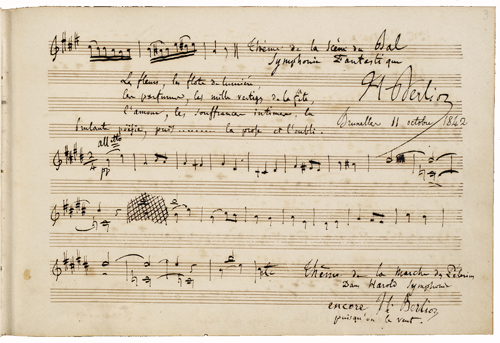 Thème de la scène du Bal
Symphonie Fantastique
Les fleurs, les flots de lumière
les parfums, les mille vertiges de la fête,
l'amour, les souffrances intimes, la
brûlante poésie, puis .......... la prose et l'oubli.
H. Berlioz
Bruxelles 11 octobre 1842
all tto
pp
Thème de la Marche des Pèlerins
Dans Harold Symphonie
encore H. Berlioz
puisqu'on le veut.